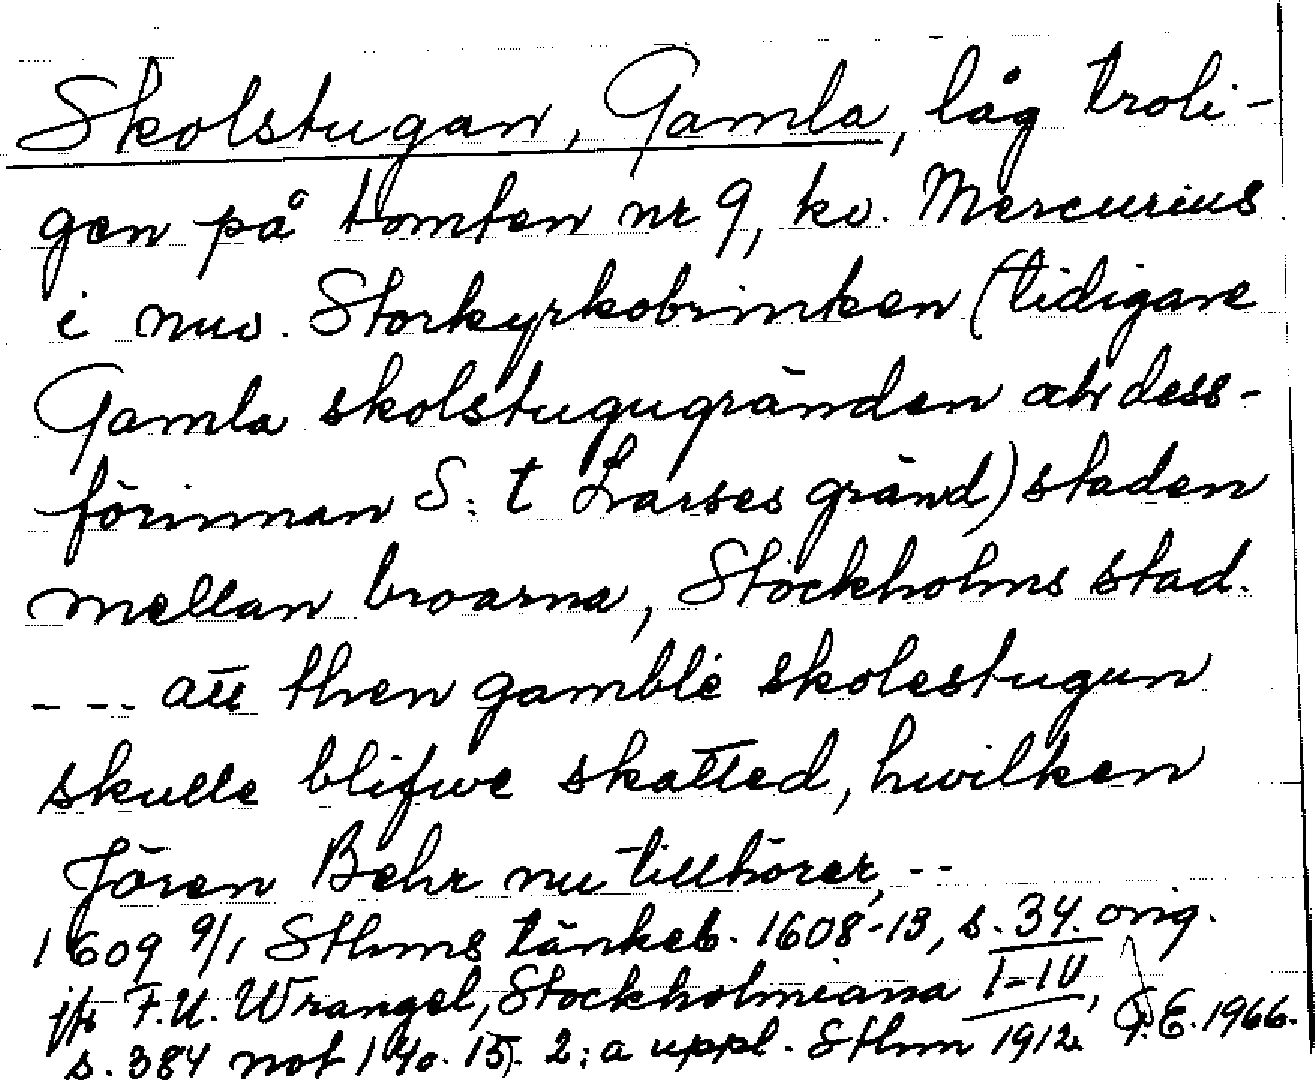 Skolstugan, Gamla, låg troli-
gen på tomten nr 9, kv. Mercurius
i nuv. Storkyrkobrinken (tidigare
Gamla skolstugugränden och dess-
förinnan S:t Larses gränd) staden
mellan broarna, Stockholms stad.
--- att then gamble skolestugun
skulle blifwe skatted, hwilken
Jören Behr nu tillhörer, --
1609 9/1 Sthms tänkeb. 1608-13, s. 34. orig.
jfr F.U. Wrangel, Stockholmiana I-IV,
s. 384 not 1 2:a uppl. Sthm 1912. E. 1966.